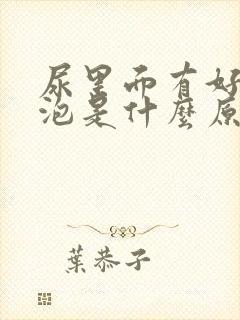 尿里而有好
泡是什麼原
葉恭子